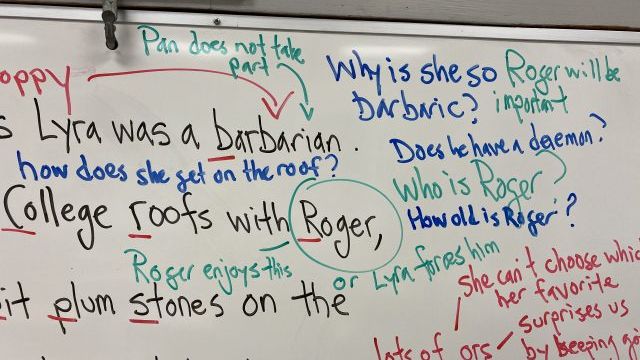 Pan does not take
part
oppy
Why is she so
Barbaric?
Roger will be
important
s Lyra was a barbarian.
Does he have a daemon?
how does she get on the roof?
Who is Roger?
College roofs with Roger,
How old is Roger?
Roger enjoys this
or Lyra forces him
it plum stones on the
She can't choose whic
her favorite
surprises us
lots of ors
by keeping